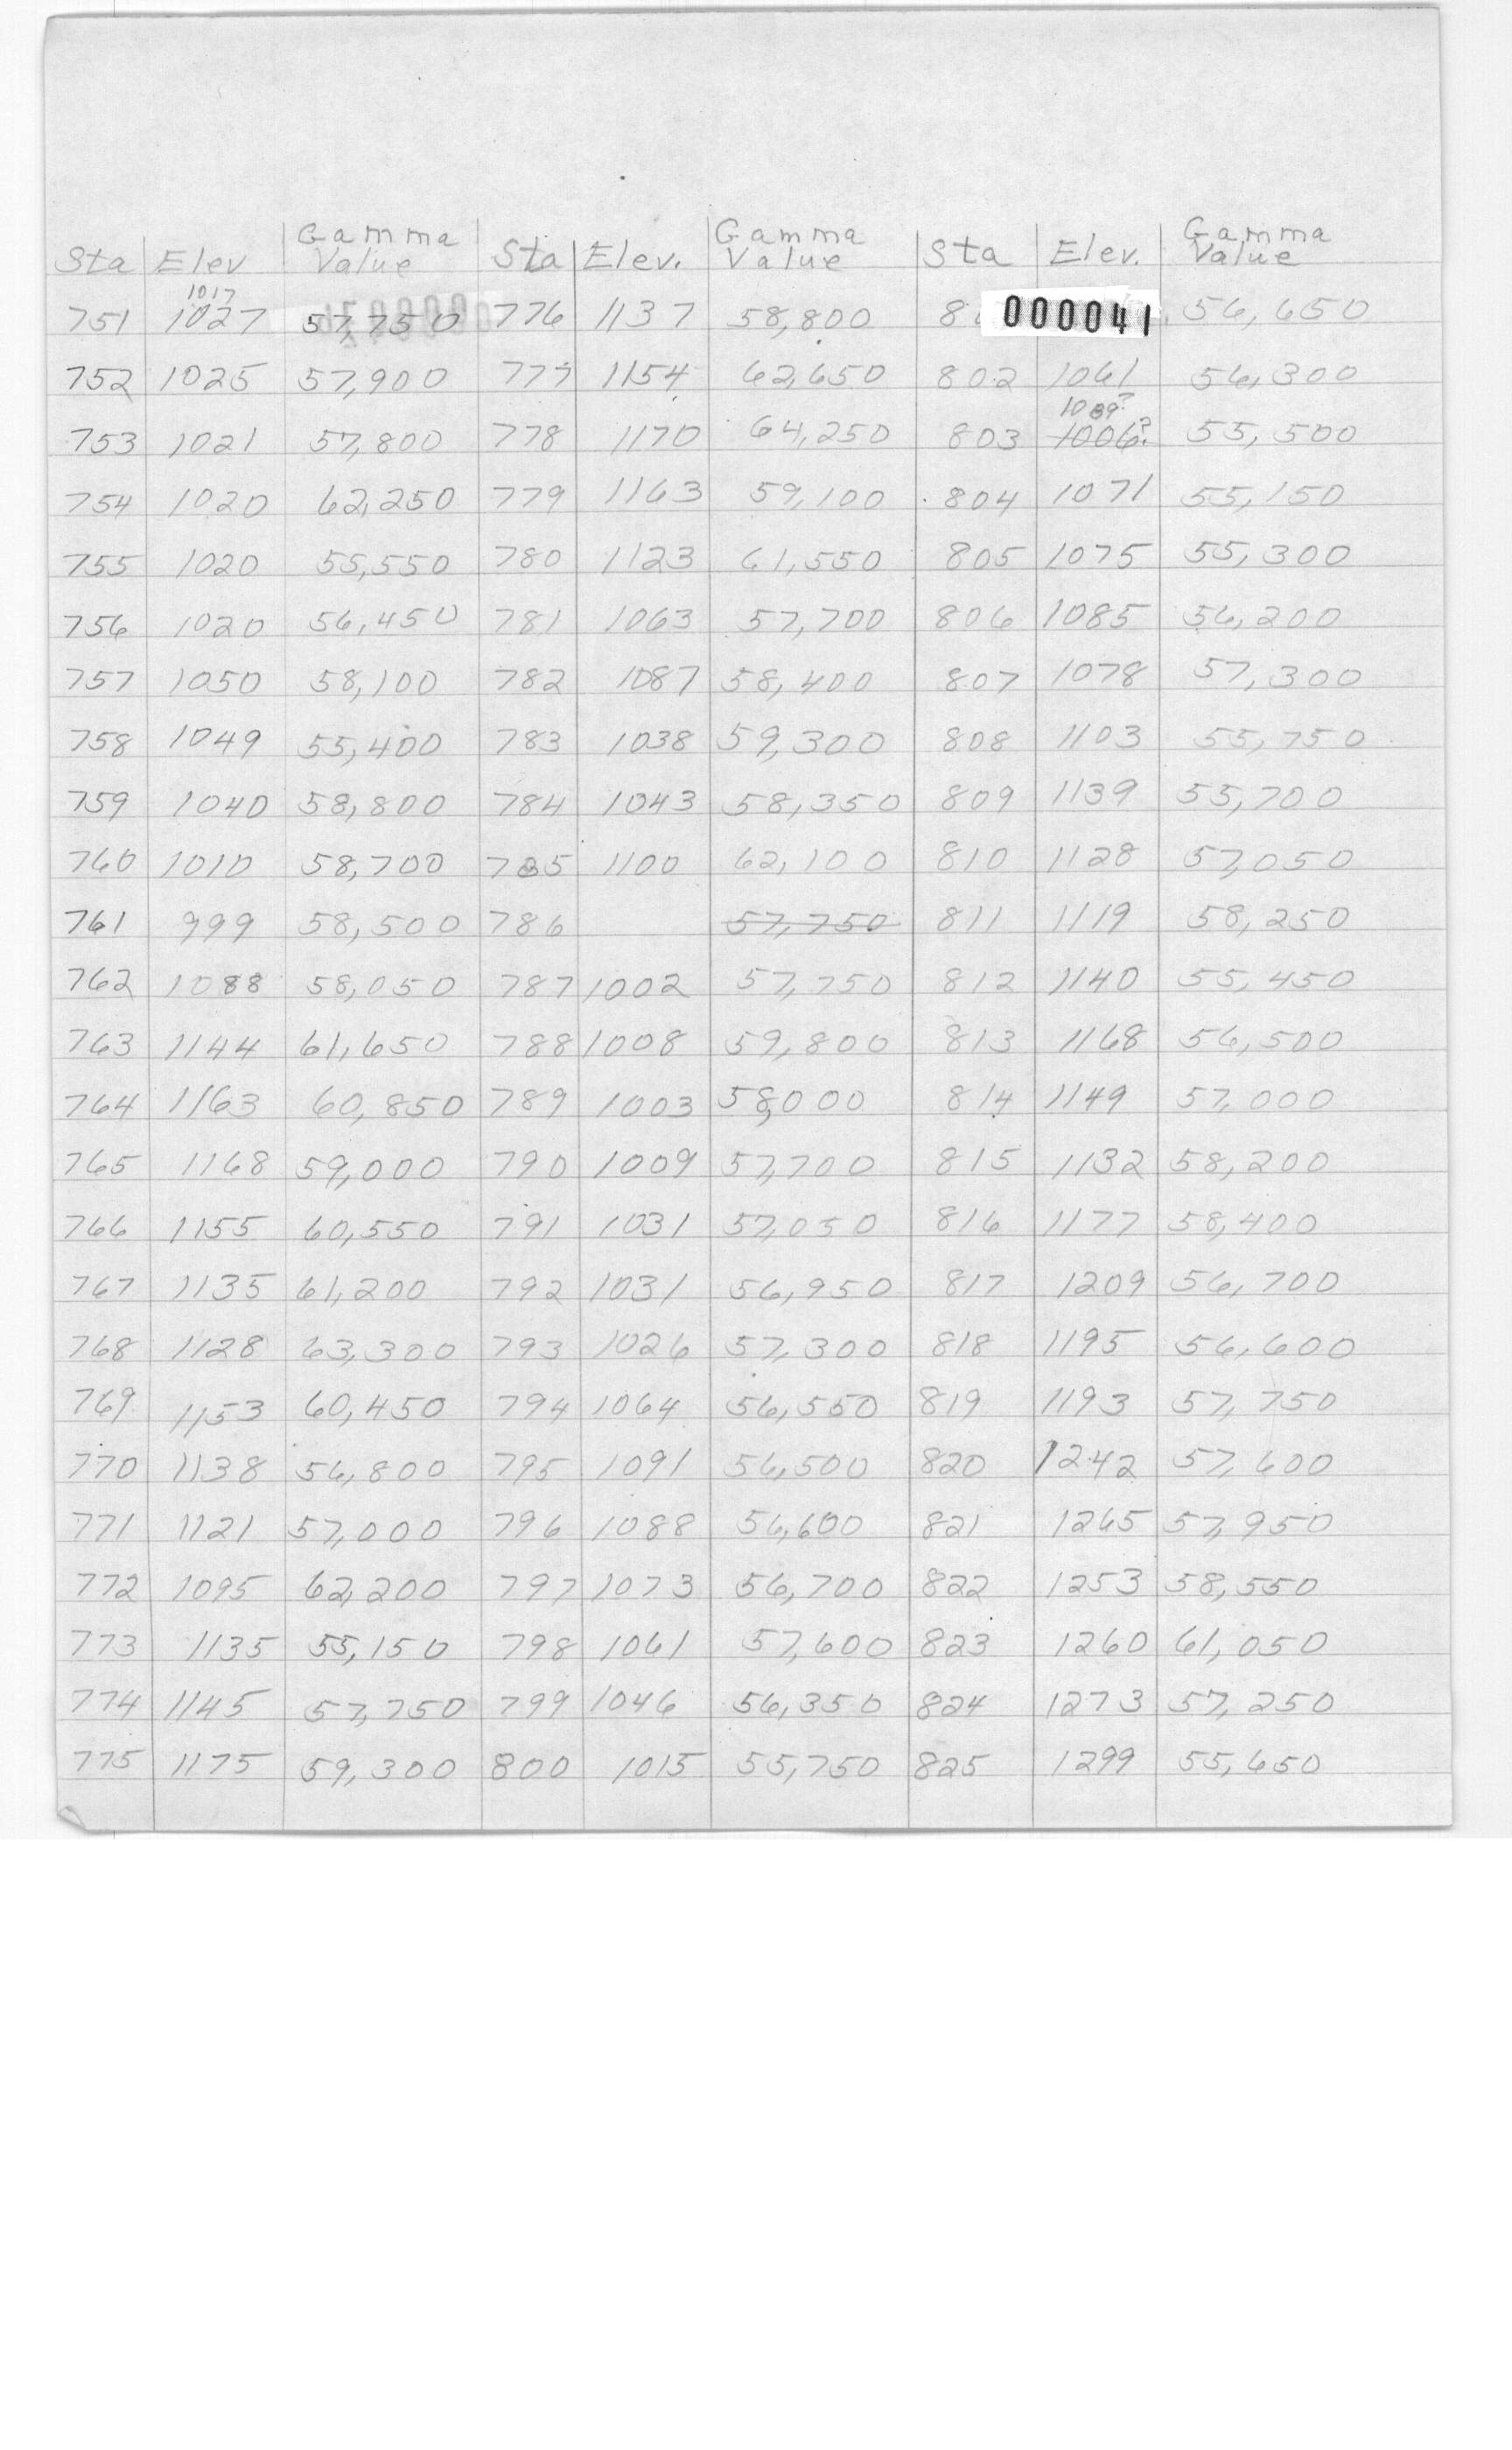 Sta Elev Gamma Value Sta Elev. Gamma Value Sta Elev. Gamma Value
1017
751 1027 57,750 776 1137 58,800 8 000041 56,650
752 1025 57,900 777 1154 62,650 802 1061 56,300
1089?
753 1021 57,800 778 1170 64,250 803 1006? 55,500
754 1020 62,250 779 1163 59,100 804 1071 55,150
755 1020 55,550 780 1123 61,550 805 1075 55,300
756 1020 56,450 781 1063 57,700 806 1085 56,200
757 1050 58,100 782 1087 58,400 807 1078 57,300
758 1049 55,400 783 1038 59,300 808 1103 55,750
759 1040 58,800 784 1043 58,350 809 1139 55,700
760 1010 58,700 785 1100 62,100 810 1128 57,050
761 999 58,500 786 57,750 811 1119 58,250
762 1088 58,050 787 1002 57,750 812 1140 55,450
763 1144 61,650 788 1008 59,800 813 1168 56,500
764 1163 60,850 789 1003 58,000 814 1149 57,000
765 1168 59,000 790 1009 57,700 815 1132 58,200
766 1155 60,550 791 1031 57,050 816 1177 58,400
767 1135 61,200 792 1031 56,950 817 1209 56,700
768 1128 63,300 793 1026 57,300 818 1195 56,600
769 1153 60,450 794 1064 56,550 819 1193 57,750
770 1138 56,800 795 1091 56,500 820 1242 57,600
771 1121 57,000 796 1088 56,600 821 1265 57,950
772 1095 62,200 797 1073 56,700 822 1253 58,550
773 1135 55,150 798 1061 57,600 823 1260 61,050
774 1145 57,750 799 1046 56,350 824 1273 57,250
775 1175 59,300 800 1015 55,750 825 1299 55,650